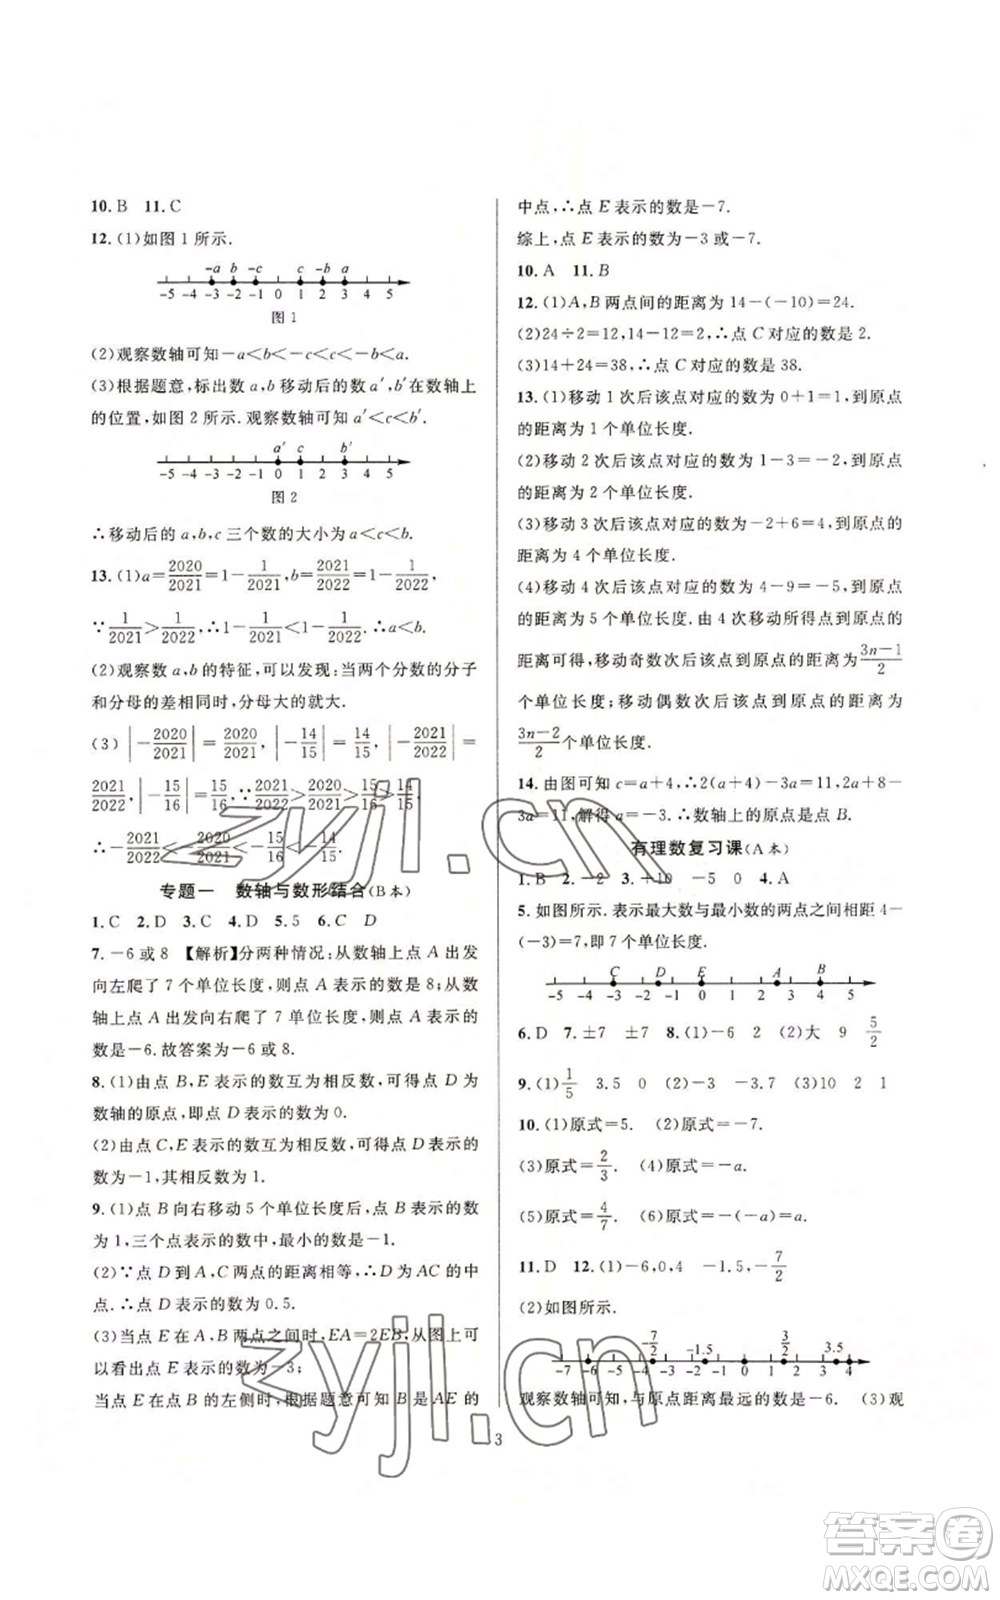 10. B  11. C
12. (1)如图 1 所示.
-a b -c c -b a
-5 -4 -3 -2 -1 0 1 2 3 4 5
图 1
(2)观察数轴可知-a<b<-c<c<-b<a.
(3)根据题意,标出数 a,b 移动后的数 a′,b′在数轴上
的位置,如图 2 所示. 观察数轴可知 a′<c<b′.
a′ c b′
-5 -4 -3 -2 -1 0 1 2 3 4 5
图 2
∴移动后的 a,b,c 三个数的大小为 a<c<b.
13. (1)a=2020/2021=1-1/2021,b=2021/2022=1-1/2022,
∵1/2021>1/2022,∴1-1/2021<1-1/2022.∴a<b.
(2)观察数 a,b 的特征,可以发现:当两个分数的分子
和分母的差相同时,分母大的就大.
(3)|-2020/2021|=2020/2021,|-14/15|=14/15,|-2021/2022|=
2021/2022,|-15/16|=15/16,∵2021/2022>2020/2021>15/16>14/15,
∴-2021/2022<-2020/2021<-15/16<-14/15.
专题一  数轴与数形结合(B本)
1. C  2. D  3. C  4. D  5. 5  6. C  D
7. -6或 8 【解析】分两种情况:从数轴上点 A 出发
向左爬了 7 个单位长度,则点 A 表示的数是 8;从数
轴上点 A 出发向右爬了 7 单位长度,则点 A 表示的
数是-6.故答案为-6 或 8.
8. (1)由点 B,E 表示的数互为相反数,可得点 D 为
数轴的原点,即点 D 表示的数为 0.
(2)由点 C,E 表示的数互为相反数,可得点 B 表示的
数为-1,其相反数为 1.
9. (1)点 B 向右移动 5 个单位长度后,点 B 表示的数
为 1,三个点表示的数中,最小的数是-1.
(2)∵点 D 到 A,C 两点的距离相等,∴点 D 为 AC 的中
点.∴点 D 表示的数为 0.5.
(3)当点 E 在 A,B 两点之间时,EA=2EB,从图上可
以看出点 E 表示的数为-3;
当点 E 在点 A 的左侧时,根据题意可知 B 是 AE 的
中点,∴点 E 表示的数是-7.
综上,点 E 表示的数为-3 或-7.
10. A  11. B
12. (1)A,B 两点间的距离为 14-(-10)=24.
(2)24÷2=12,14-12=2,∴点 C 对应的数是 2.
(3)14+24=38,∴点 C 对应的数是 38.
13. (1)移动 1 次后该点对应的数为 0+1=1,到原点
的距离为 1 个单位长度.
(2)移动 2 次后该点对应的数为 1-3=-2,到原点
的距离为 2 个单位长度.
(3)移动 3 次后该点对应的数为-2+6=4,到原点的
距离为 4 个单位长度.
(4)移动 4 次后该点对应的数为 4-9=-5,到原点
的距离为 5 个单位长度. 由 4 次移动所得点到原点的
距离可得,移动奇数次后该点到原点的距离为(3n-1)/2
个单位长度;移动偶数次后该点到原点的距离为
(3n-2)/2个单位长度.
14. 由图可知 c=a+4,∴2(a+4)-3a=11,2a+8-
3a=11,解得 a=-3.∴数轴上的原点是点 B.
有理数复习课(A本)
1. B  2. -2  3. +10  -5  0  4. A
5. 如图所示. 表示最大数与最小数的两点之间相距 4-
(-3)=7,即 7 个单位长度.
C D E A B
-5 -4 -3 -2 -1 0 1 2 3 4 5
6. D  7. ±7  ±7  8. (1)-6  2  (2)大  9  5/2
9. (1)1/5  3.5  0  (2)-3  -3.7  (3)10  2  1
10. (1)原式=5.  (2)原式=-7.
(3)原式=2/3.  (4)原式=-a.
(5)原式=4/7.  (6)原式=-(-a)=a.
11. D  12. (1)-6,0,4  -1.5,-7/2
(2)如图所示.
-7/2 -1.5 3/2 3.5
-7 -6 -5 -4 -3 -2 -1 0 1 2 3 4
观察数轴可知,与原点距离最远的数是-6.  (3)观
3
zyjl.cn
zyjl.cn
答案圈
MXQE.COM